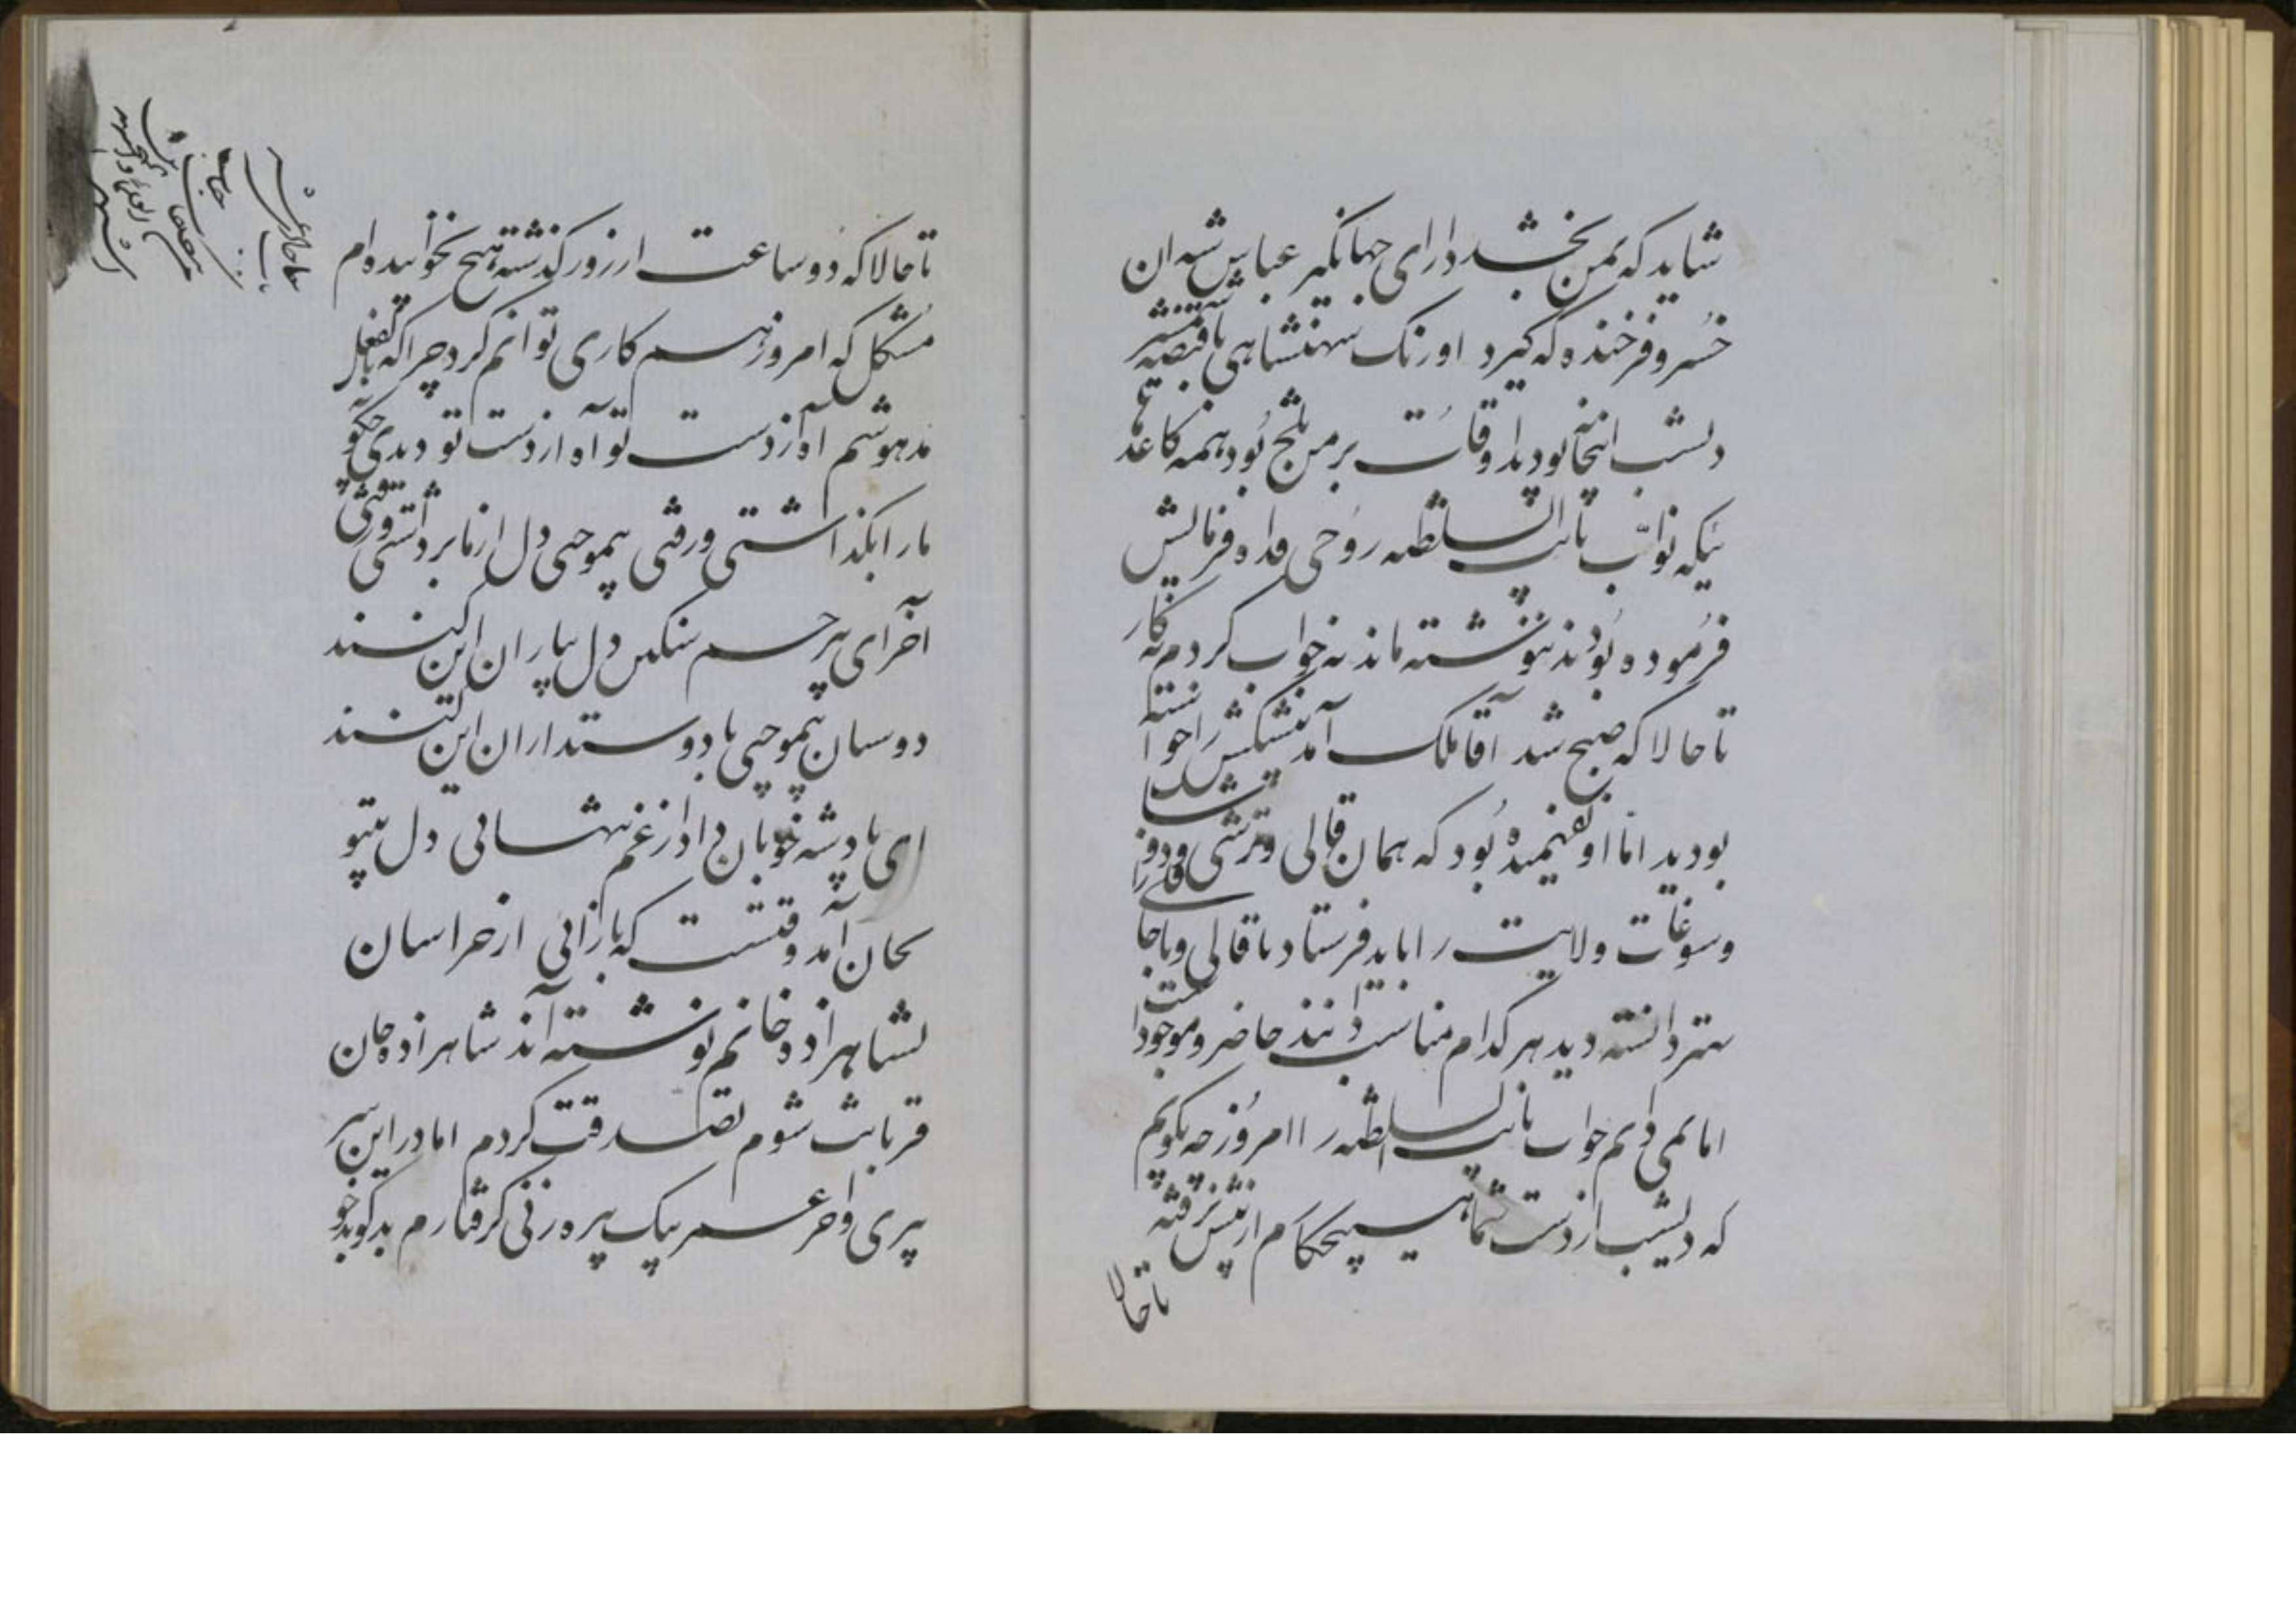 شاید که بمن بخشد دارای جهانگیر عباس شه ان
خسرو فرخنده که گیرد اورنک شهنشاهی با قبضه شمشیر
دیشب اینجا نبودید اوقات بر من تلخ بود همه کاغذ
نیکه نواب نایب السلطنه روحی فداه فرمایش
فرموده بودند ننوشته ماند نه خواب کردم نه کار
تا حالا که صبح شد آقا ملک آمد پیشکش را خواسته
بودید اما او نفهمیده بود که همان قالی و ترشی
وسوغات ولایت را باید فرستاد با قالی و باجا
دانسته دید هر کدام مناسب دانند حاضر و موجود است
اما نمی دانم جواب نایب السلطنه را امروز چه بگویم
که دیشب از دست شما هیچ کارم از پیش نرفته
تا حالا
تا حالا که دو ساعت از روز گذشته هیچ نخوابیده ام
مشکل که امروز هم کاری توانم کرد چرا که بالفعل
مدهوشم آه از دست تو آه از دست تو دیدی چگو
ما را بگذاشتی و رفتی بیموجبی دل از ما برداشتی و رفتی
آخر ای بیرحم سنگین دل بیاران این کنند
دوستان بیموجبی با دوستداران این کنند
ای پادشه خوبان داد از غم تنهائی دل بیتو
بجان آمد وقتست که باز آئی از خراسان
بشاهزاده خانم نوشته اند شاهزاده جان
قربانت شوم تصدقت کردم اما در این سر
پیری و آخر عمر بیک پیره زنی گرفتارم بدگو بدخو